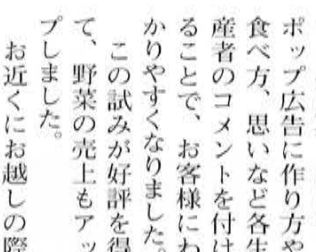 ポップ広告に作り方や
食べ方、思いなど各生
産者のコメントを付け
ることで、お客様にわ
かりやすくなりました。
この試みが好評を得
て、野菜の売上もアッ
プしました。
お近くにお越しの際